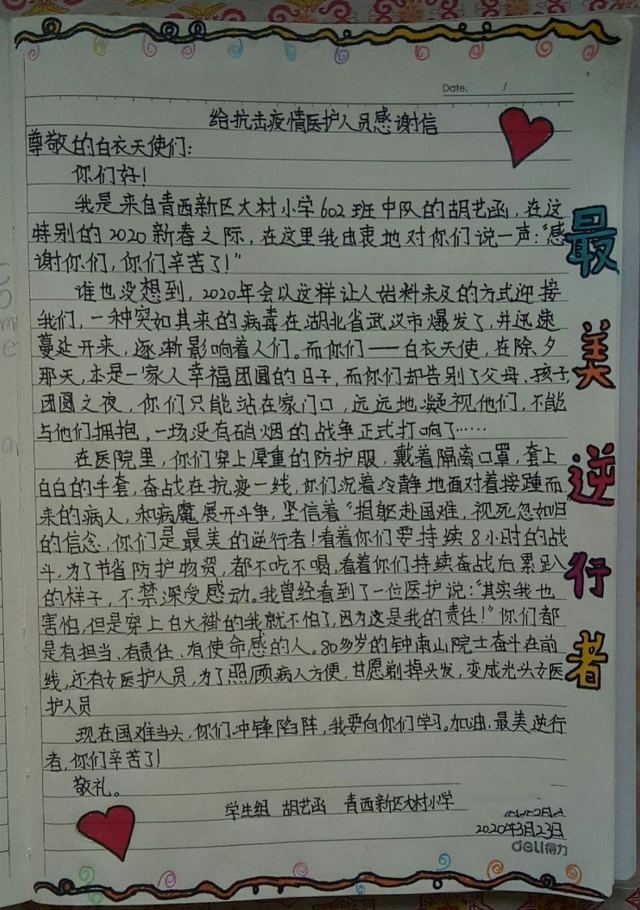 Date.     /
给抗击疫情医护人员感谢信
尊敬的白衣天使们:
你们好!
我是来自青西新区大村小学602班中队的胡艺函,在这
特别的2020新春之际,在这里我由衷地对你们说一声:“感
谢你们,你们辛苦了!”
谁也没想到,2020年会以这样让人始料未及的方式迎接
我们,一种突如其来的病毒在湖北省武汉市爆发了,并迅速
蔓延开来,逐渐影响着人们。而你们——白衣天使,在除夕
那天,本是一家人幸福团圆的日子,而你们却告别了父母、孩子,
团圆之夜,你们只能站在家门口,远远地凝视他们,不能
与他们拥抱,一场没有硝烟的战争正式打响了……
在医院里,你们穿上厚重的防护服,戴着隔离口罩,套上
白白的手套,奋战在抗疫一线,你们沉着冷静地面对着接踵而
来的病人,和病魔展开斗争,坚信着“捐躯赴国难,视死忽如归”
的信念,你们是最美的逆行者!看着你们要持续8小时的战
斗,为了节省防护物资,都不吃不喝,看着你们持续奋战后累趴
的样子,不禁深受感动。我曾经看到了一位医护说:“其实我也
害怕,但是穿上白大褂的我就不怕了,因为这是我的责任!”你们都
是有担当、有责任、有使命感的人。80多岁的钟南山院士奋斗在前
线,还有女医护人员,为了照顾病人方便,甘愿剃掉头发,变成光头女医
护人员
现在国难当头,你们冲锋陷阵,我要向你们学习。加油,最美逆行
者,你们辛苦了!
敬礼。
学生组 胡艺函 青西新区大村小学
2020年3月23日
deli得力
最
美
逆
行
者